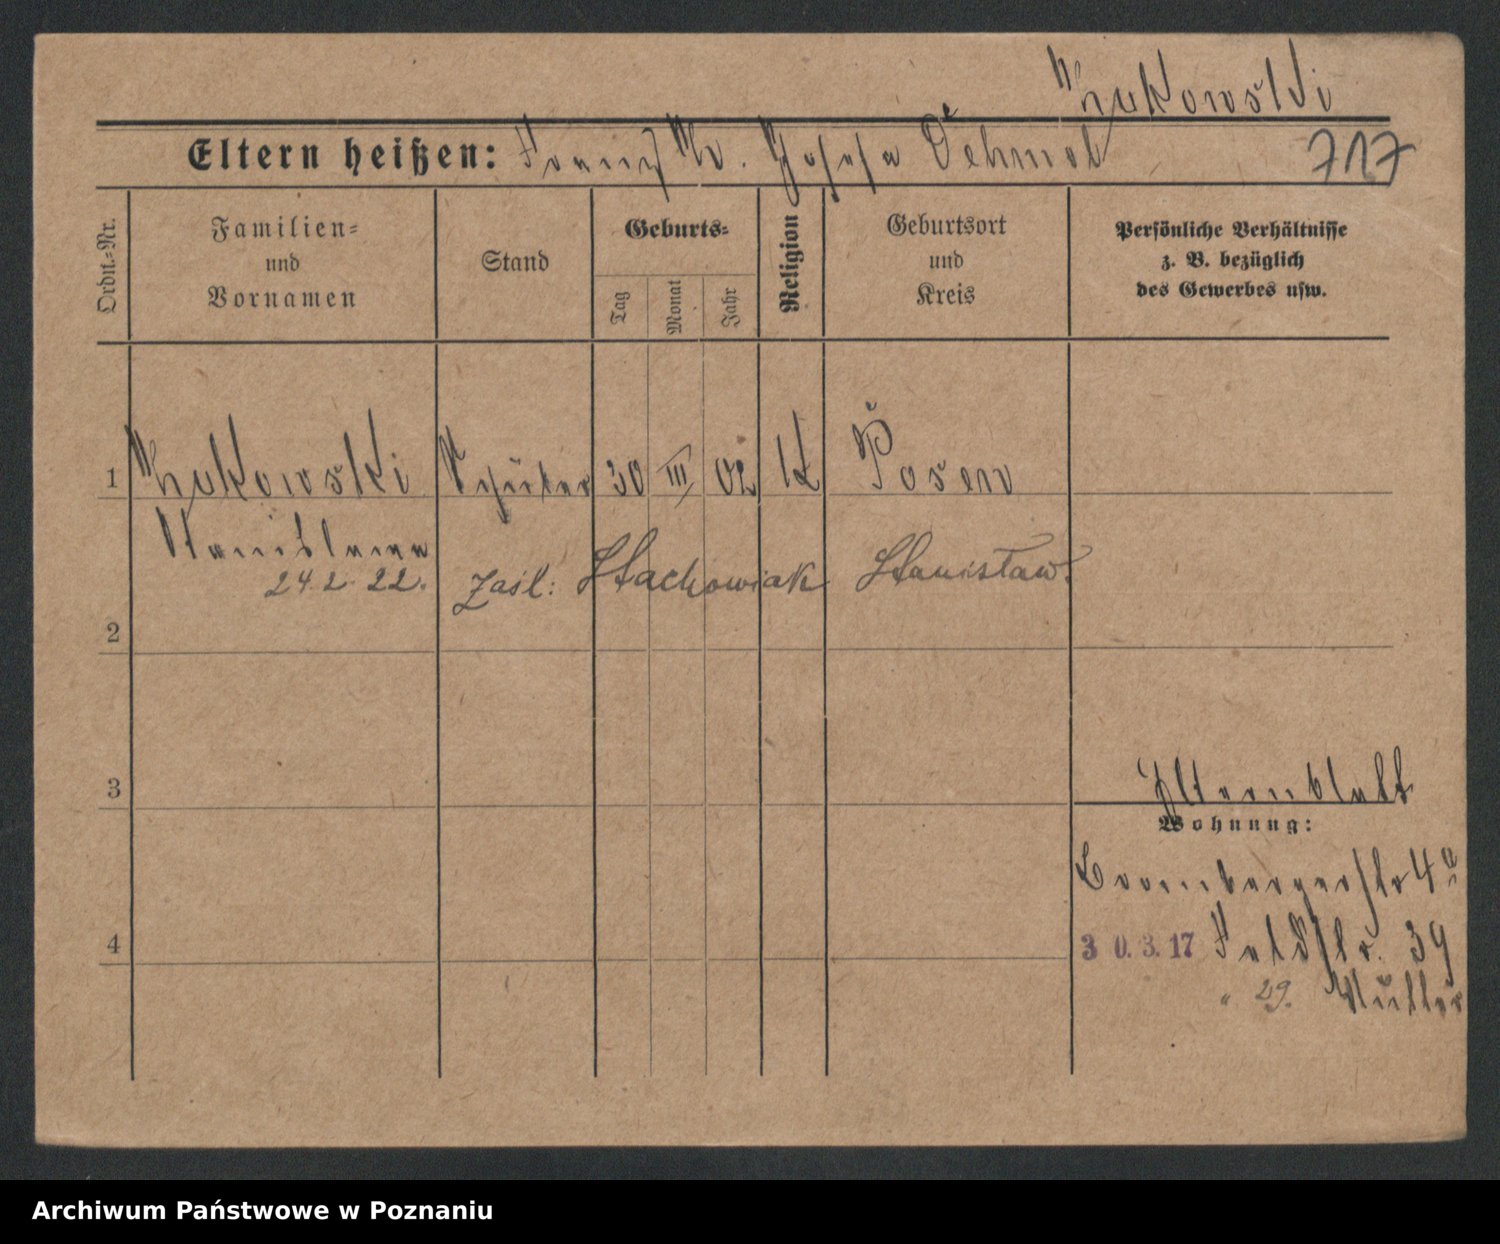 Zukowski
Eltern heißen: Franz Z. Josefa Dehmel
717
Ordn.-Nr.
Familien-
und
Vornamen
Stand
Geburts-
Tag
Monat
Jahr
Religion
Geburtsort
und
Kreis
Persönliche Verhältnisse
z. B. bezüglich
des Gewerbes usw.
1 Zukowski Schüler 30 III 02 K Posen
Stanislaus
24.2.22. zaśl: Stachowiak Stanisław.
2
3
Elternblatt
Wohnung:
Brombergerstr 4a
4
30.3.17 Feldstr. 39
" 29. Mutter
Archiwum Państwowe w Poznaniu